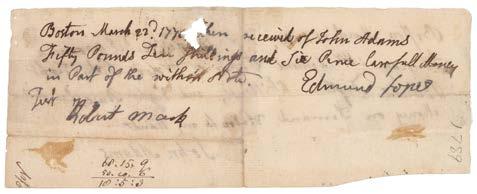 Boston March 22d. 177 then received of John Adams
Fifty Pounds Ten Shillings and Six Pence Lawfull Money
in Part of the within Note.
Edmund
Test
Robert Mack
60.15.9
50.10.6
10:5:3